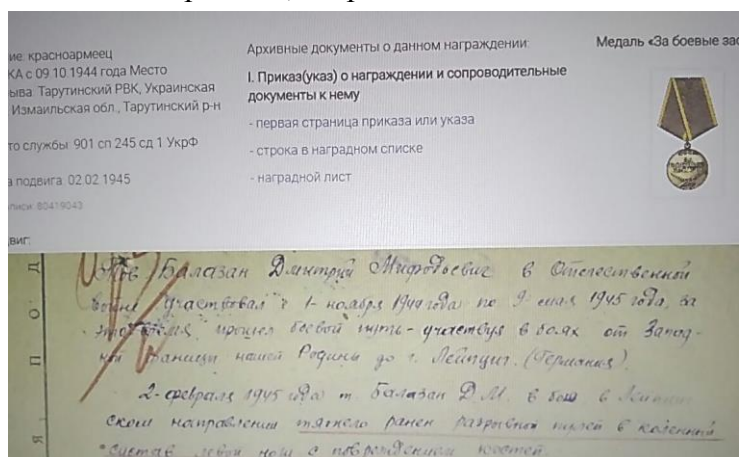 ие: красноармеец
КА с 09.10.1944 года Место
ыва: Тарутинский РВК, Украинская
Измаильская обл., Тарутинский р-н
то службы: 901 сп 245 сд 1 УкрФ
а подвига: 02.02.1945
писи: 80419043
виг:
Архивные документы о данном награждении:
I. Приказ(указ) о награждении и сопроводительные
документы к нему
- первая страница приказа или указа
- строка в наградном списке
- наградной лист
Медаль «За боевые зас
П О Д
Тов Балазан Дмитрий Мифодьевич в Отечественной
войне участвовал с 1- ноября 1944 года по 9- мая 1945 года, за
это время прошел боевой путь - участвуя в боях от Запад-
ной границы нашей Родины до г. Лейпциг. (Германия).
2- февраля 1945 года т. Балазан Д.М. в бою в
ском направлении тяжело ранен разрывной пулей в коленный
сустав левой ноги с повреждением костей.